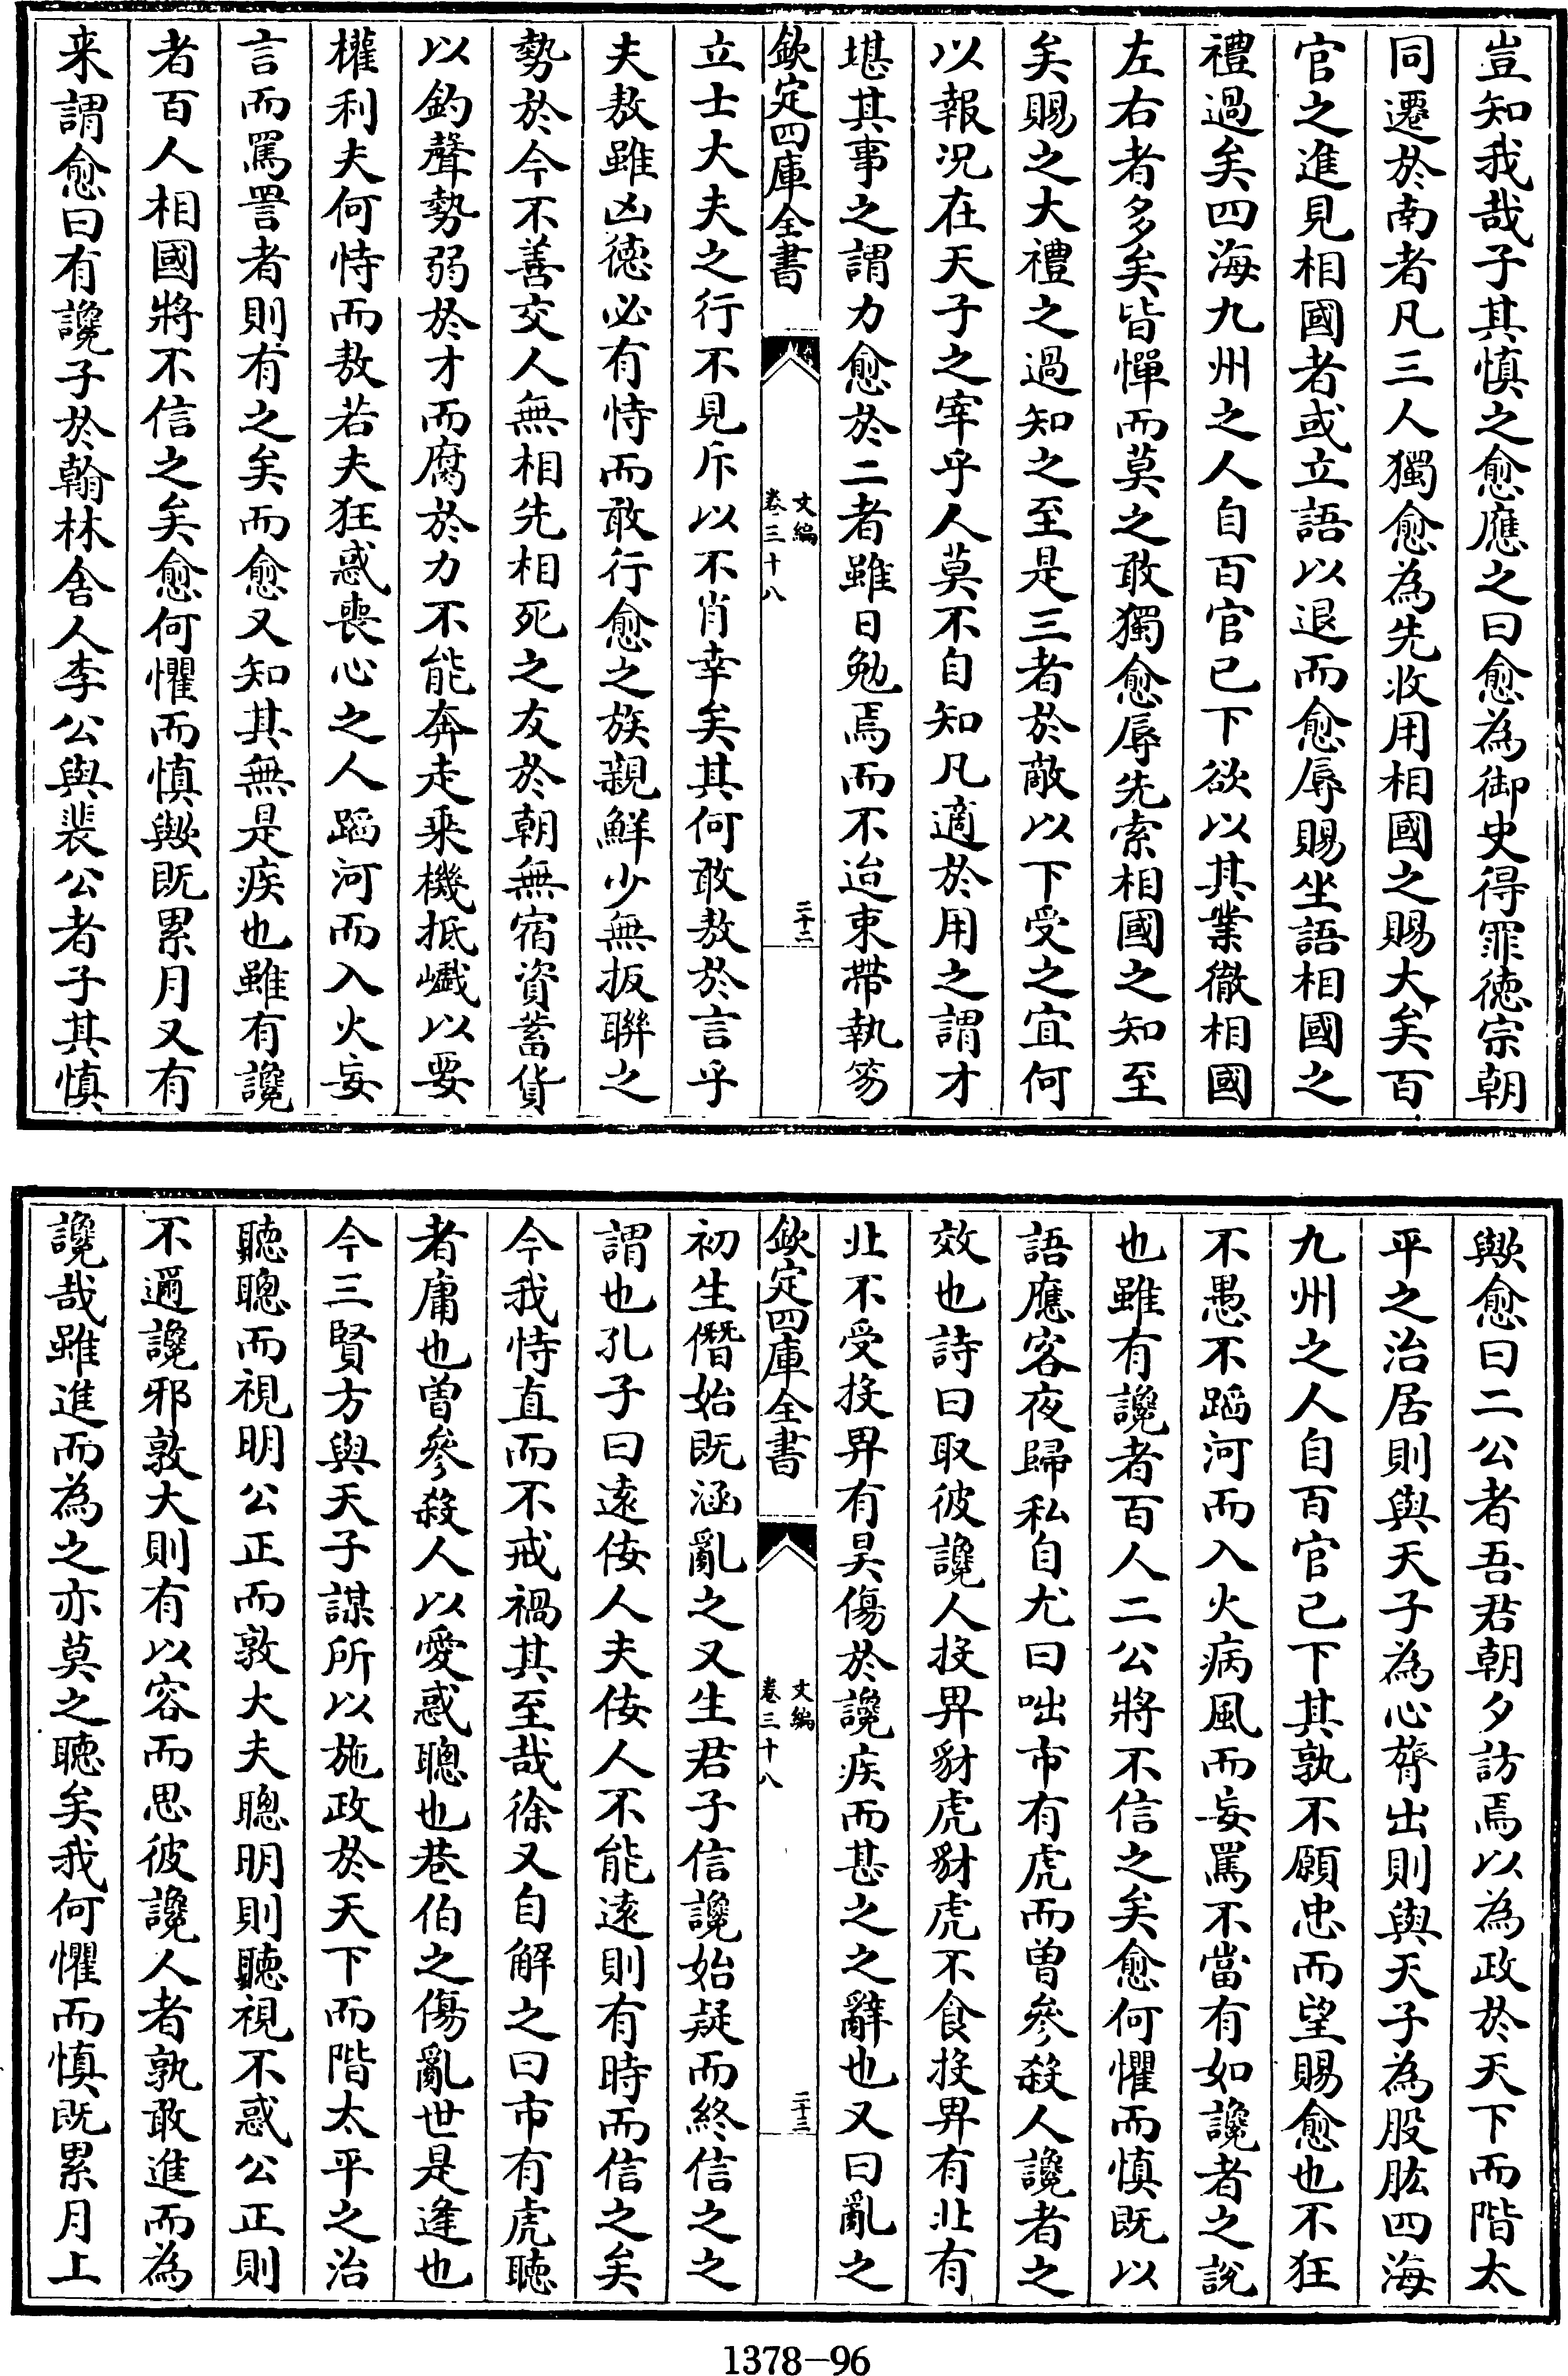 豈知我哉子其慎之愈應之曰愈為御史得罪徳宗朝
同遷於南者凡三人獨愈為先收用相國之賜大矣百
官之進見相國者或立語以退而愈辱賜坐語相國之
禮過矣四海九州之人自百官已下欲以其業徹相國
左右者多矣皆憚而莫之敢獨愈辱先索相國之知至
矣賜之大禮之過知之至是三者於敵以下受之宜何
以報况在天子之宰乎人莫不自知凡適於用之謂才
堪其事之謂力愈於二者雖日勉焉而不迨束帶執笏
欽定四庫全書
文編
卷三十八
二十二
立士大夫之行不見斥以不肖幸矣其何敢敖於言乎
夫敖雖凶徳必有恃而敢行愈之族親鮮少無扳聯之
勢於今不善交人無相先相死之友於朝無宿資蓄貨
以釣聲勢弱於才而腐於力不能奔走乘機抵巇以要
權利夫何恃而敖若夫狂惑喪心之人蹈河而入火妄
言而罵詈者則有之矣而愈又知其無是疾也雖有讒
者百人相國將不信之矣愈何懼而慎歟既累月又有
来謂愈曰有讒子於翰林舍人李公與裴公者子其慎
歟愈曰二公者吾君朝夕訪焉以為政於天下而階太
平之治居則與天子為心膂出則與天子為股肱四海
九州之人自百官已下其孰不願忠而望賜愈也不狂
不愚不蹈河而入火病風而妄罵不當有如讒者之說
也雖有讒者百人二公將不信之矣愈何懼而慎既以
語應客夜歸私自尤曰咄市有虎而曽參殺人讒者之
效也詩曰取彼讒人投畀豺虎豺虎不食投畀有北有
北不受投畀有昊傷於讒疾而甚之之辭也又曰亂之
欽定四庫全書
文編
卷三十八
二十三
初生僭始既涵亂之又生君子信讒始疑而終信之之
謂也孔子曰遠佞人夫佞人不能遠則有時而信之矣
今我恃直而不戒禍其至哉徐又自解之曰市有虎聽
者庸也曽參殺人以愛惑聰也巷伯之傷亂世是逢也
今三賢方與天子謀所以施政於天下而階太平之治
聽聰而視明公正而敦大夫聰明則聽視不惑公正則
不邇讒邪敦大則有以容而思彼讒人者孰敢進而為
讒哉雖進而為之亦莫之聽矣我何懼而慎既累月上
1378-96